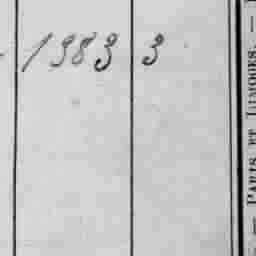 1383 3
PARIS ET LIMOGES. —